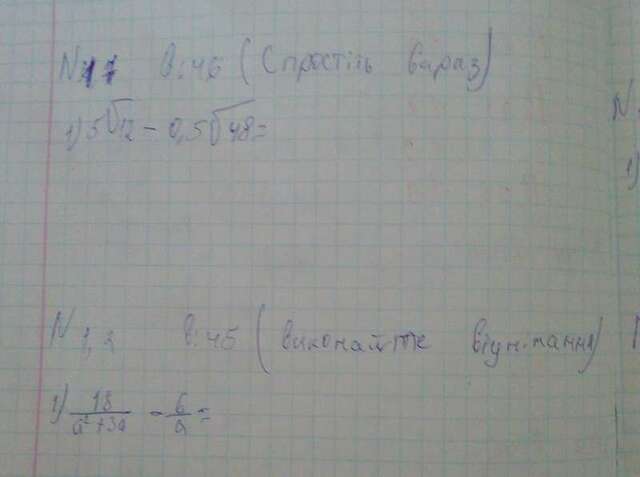 N 1.1 В:46 (Спростіть вираз)
1) 5√12 - 0,5√48 =
N 1,2 В:46 (виконайте віднімання)
1) 18/(a²+3a) - 6/a =
N
1)